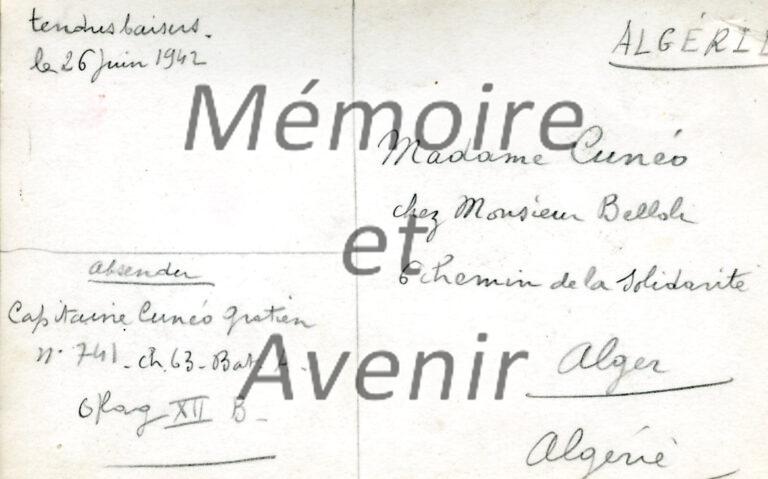 tendres baisers.
le 26 juin 1942
ALGÉRIE
Mémoire
et
Avenir
Madame Cunéo
chez Monsieur
6 Chemin de la Solidarité
Alger
Algérie
Absender
Capitaine Cunéo Gratien
n° 741 - ch. 63 - Bat. A -
Oflag XII B -